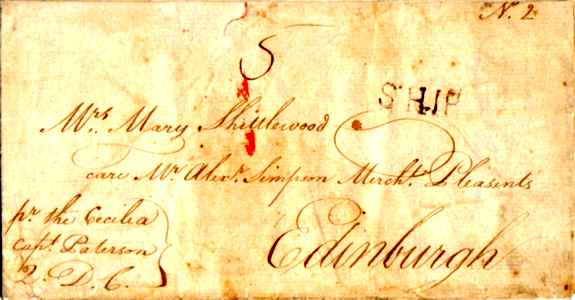 N. 2
5
SHIP
Mrs. Mary Shittlewood
care Mr. Alexr. Simpson Mercht. Pleasents
Edinburgh
pr. the Cecilia
capt. Paterson
2. D. C.